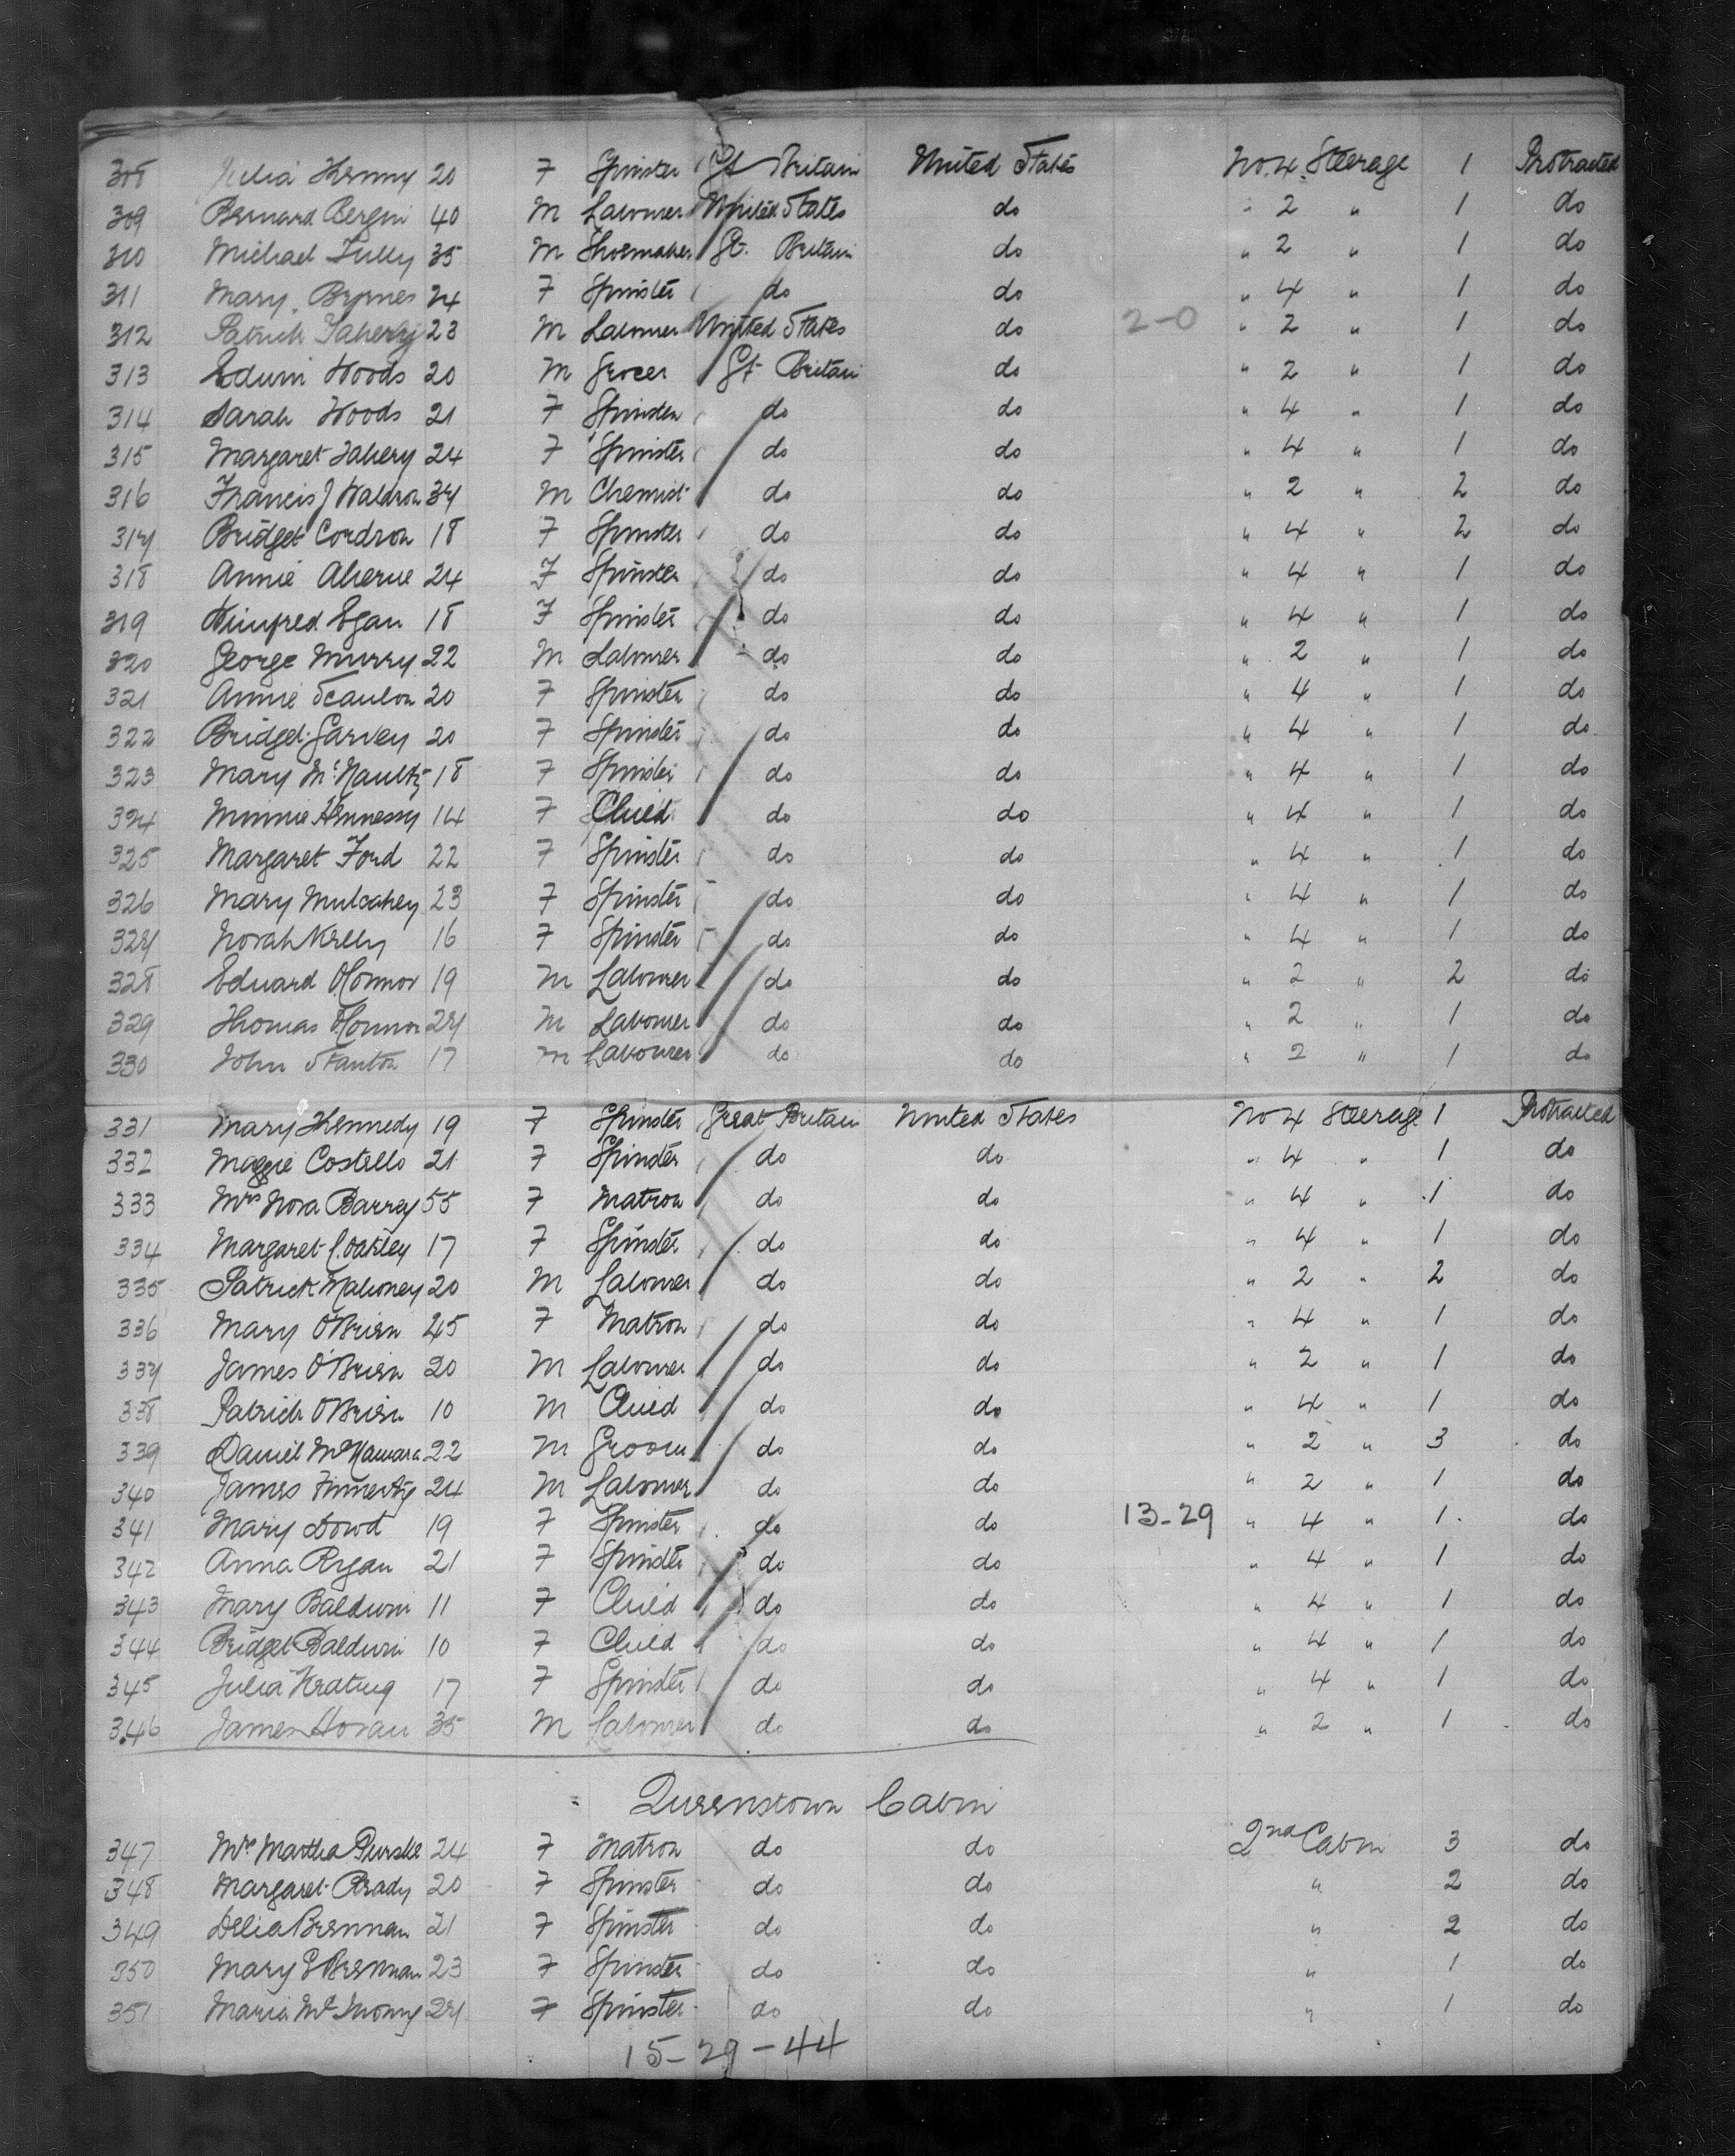 308 Julia Kenny 20 F Spinster Gt Britain United States No. 4 Steerage 1 Protracted
309 Bernard Bergin 40 M Labourer United States do " 2 " 1 do
310 Michael Tully 35 M Shoemaker Gt. Britain do " 2 " 1 do
311 Mary Byrnes 24 F Spinster do do " 4 " 1 do
312 Patrick Faherty 23 M Labourer United States do 2-0 " 2 " 1 do
313 Edwin Woods 20 M Grocer Gt Britain do " 2 " 1 do
314 Sarah Woods 21 F Spinster do do " 4 " 1 do
315 Margaret Fahery 24 F Spinster do do " 4 " 1 do
316 Francis J Waldron 37 M Chemist do do " 2 " 2 do
317 Bridget Cordron 18 F Spinster do do " 4 " 2 do
318 Annie Aherne 24 F Spinster do do " 4 " 1 do
319 Winifred Egan 18 F Spinster do do " 4 " 1 do
320 George Murry 22 M Labourer do do " 2 " 1 do
321 Annie Scanlon 20 F Spinster do do " 4 " 1 do
322 Bridget Garvey 20 F Spinster do do " 4 " 1 do
323 Mary McNaulty 18 F Spinster do do " 4 " 1 do
324 Minnie Hennessy 14 F Child do do " 4 " 1 do
325 Margaret Ford 22 F Spinster do do " 4 " 1 do
326 Mary Mulcahey 23 F Spinster do do " 4 " 1 do
327 Norah Kelly 16 F Spinster do do " 4 " 1 do
328 Edward O'Connor 19 M Labourer do do " 2 " 2 do
329 Thomas O'Connor 27 M Labourer do do " 2 " 1 do
330 John Stanton 17 M Labourer do do " 2 " 1 do
331 Mary Kennedy 19 F Spinster Great Britain United States No 4 Steerage 1 Protracted
332 Maggie Costello 21 F Spinster do do " 4 " 1 do
333 Mrs Nora Barry 55 F Matron do do " 4 " 1 do
334 Margaret C. Oakley 17 F Spinster do do " 4 " 1 do
335 Patrick Mahoney 20 M Labourer do do " 2 " 2 do
336 Mary O'Brien 45 F Matron do do " 4 " 1 do
337 James O'Brien 20 M Labourer do do " 2 " 1 do
338 Patrick O'Brien 10 M Child do do " 4 " 1 do
339 Daniel McNamara 22 M Groom do do " 2 " 3 do
340 James Finnerty 24 M Labourer do do " 2 " 1 do
341 Mary Dowd 19 F Spinster do do 13-29 " 4 " 1 do
342 Anna Ryan 21 F Spinster do do " 4 " 1 do
343 Mary Baldwin 11 F Child do do " 4 " 1 do
344 Bridget Baldwin 10 F Child do do " 4 " 1 do
345 Julia Keating 17 F Spinster do do " 4 " 1 do
346 James Horan 35 M Labourer do do " 2 " 1 do
Queenstown Cabin
347 Mrs Martha 24 F Matron do do 2nd Cabin 3 do
348 Margaret Brady 20 F Spinster do do " 2 do
349 Delia Brennan 21 F Spinster do do " 2 do
350 Mary E Brennan 23 F Spinster do do " 1 do
351 Maria 27 F Spinster do do " 1 do
15-29-44